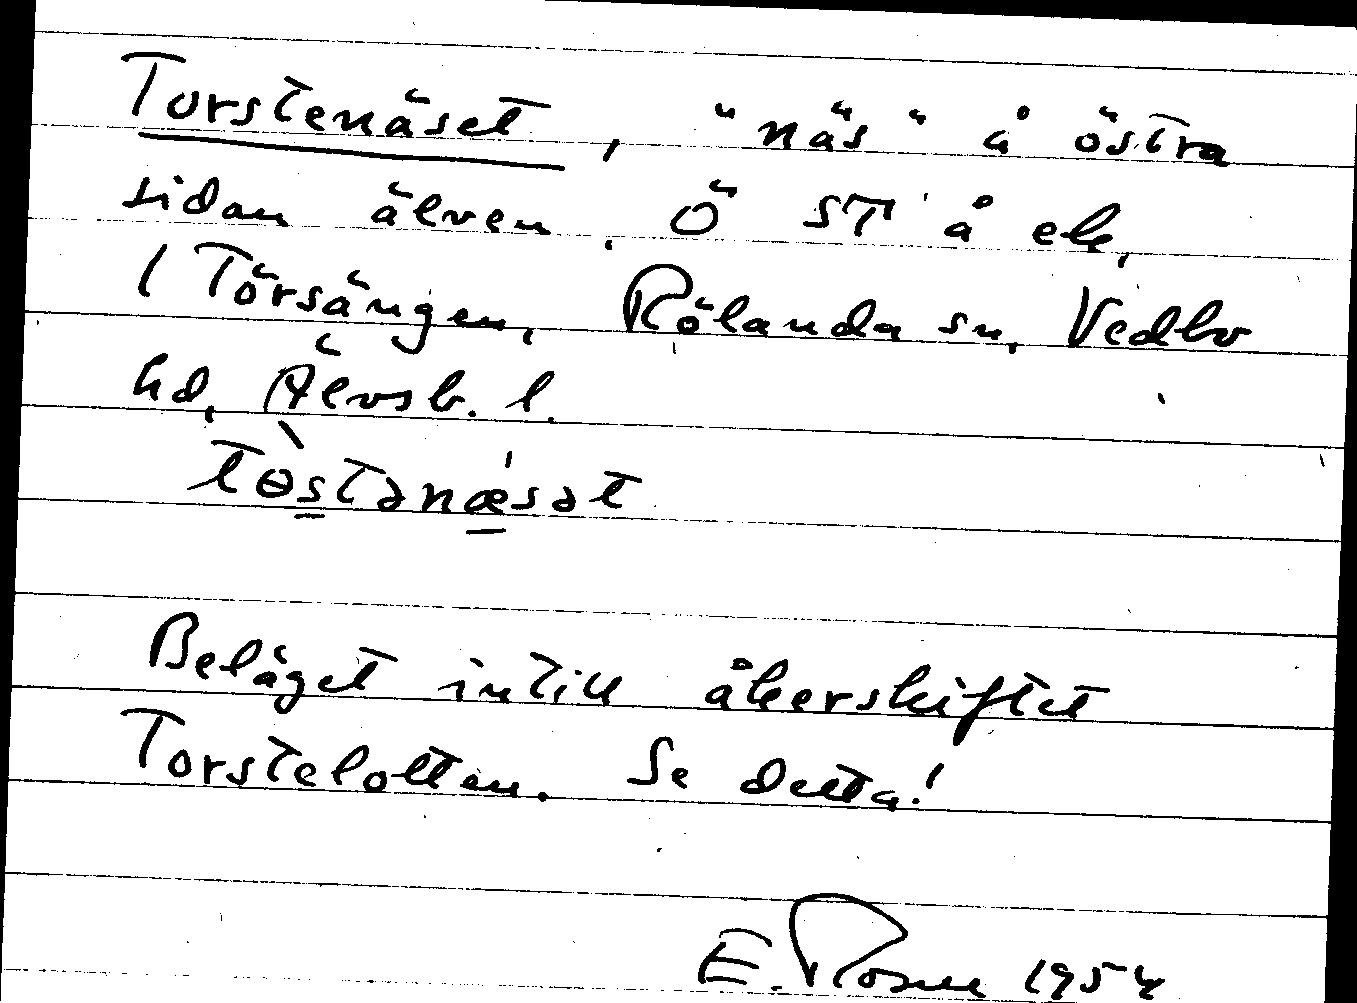 Torstenäset, "näs" å östra
sidan älven, Ö ST å ek,
(Törsängen, Rölanda sn, Vedbo
hd, Älvsb. l.
tòstənæ̀sət
Beläget intill åkerskiftet
Torstelotten. Se detta!
E. Rosén 1954